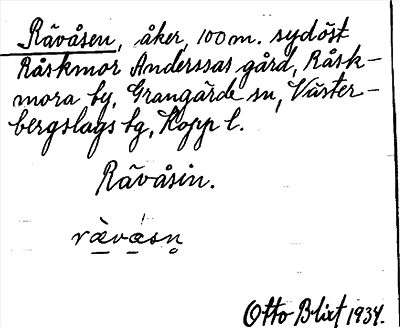 Rävåsen, åker, 100 m. sydöst
Råskmor Anderssas gård, Råsk-
mora by, Grangärde sn, Väster-
bergslags bg, Kopp l.
Rävåsin.
ræ̀væ̀sn̥
Otto Blixt 1934.